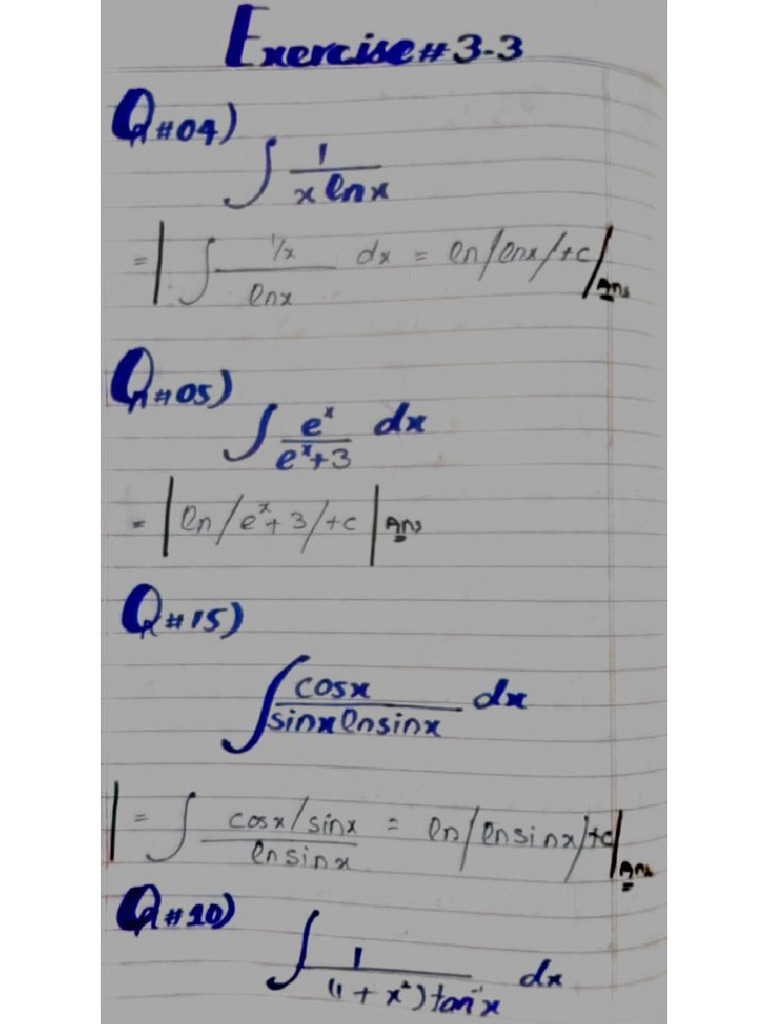 Exercise # 3-3
Q#04)
∫ 1 / (x ln x)
= | ∫ (1/x) / (ln x) dx = ln/lnx/+c | Ans
Q#05)
∫ e^x / (e^x+3) dx
= | ln/e^x+3/+c | Ans
Q#15)
∫ cosx / (sinx lnsinx) dx
| = ∫ (cosx/sinx) / (lnsinx) = ln/lnsinx/+c | Ans
Q#10)
∫ 1 / ((1 + x²) tan⁻¹x) dx